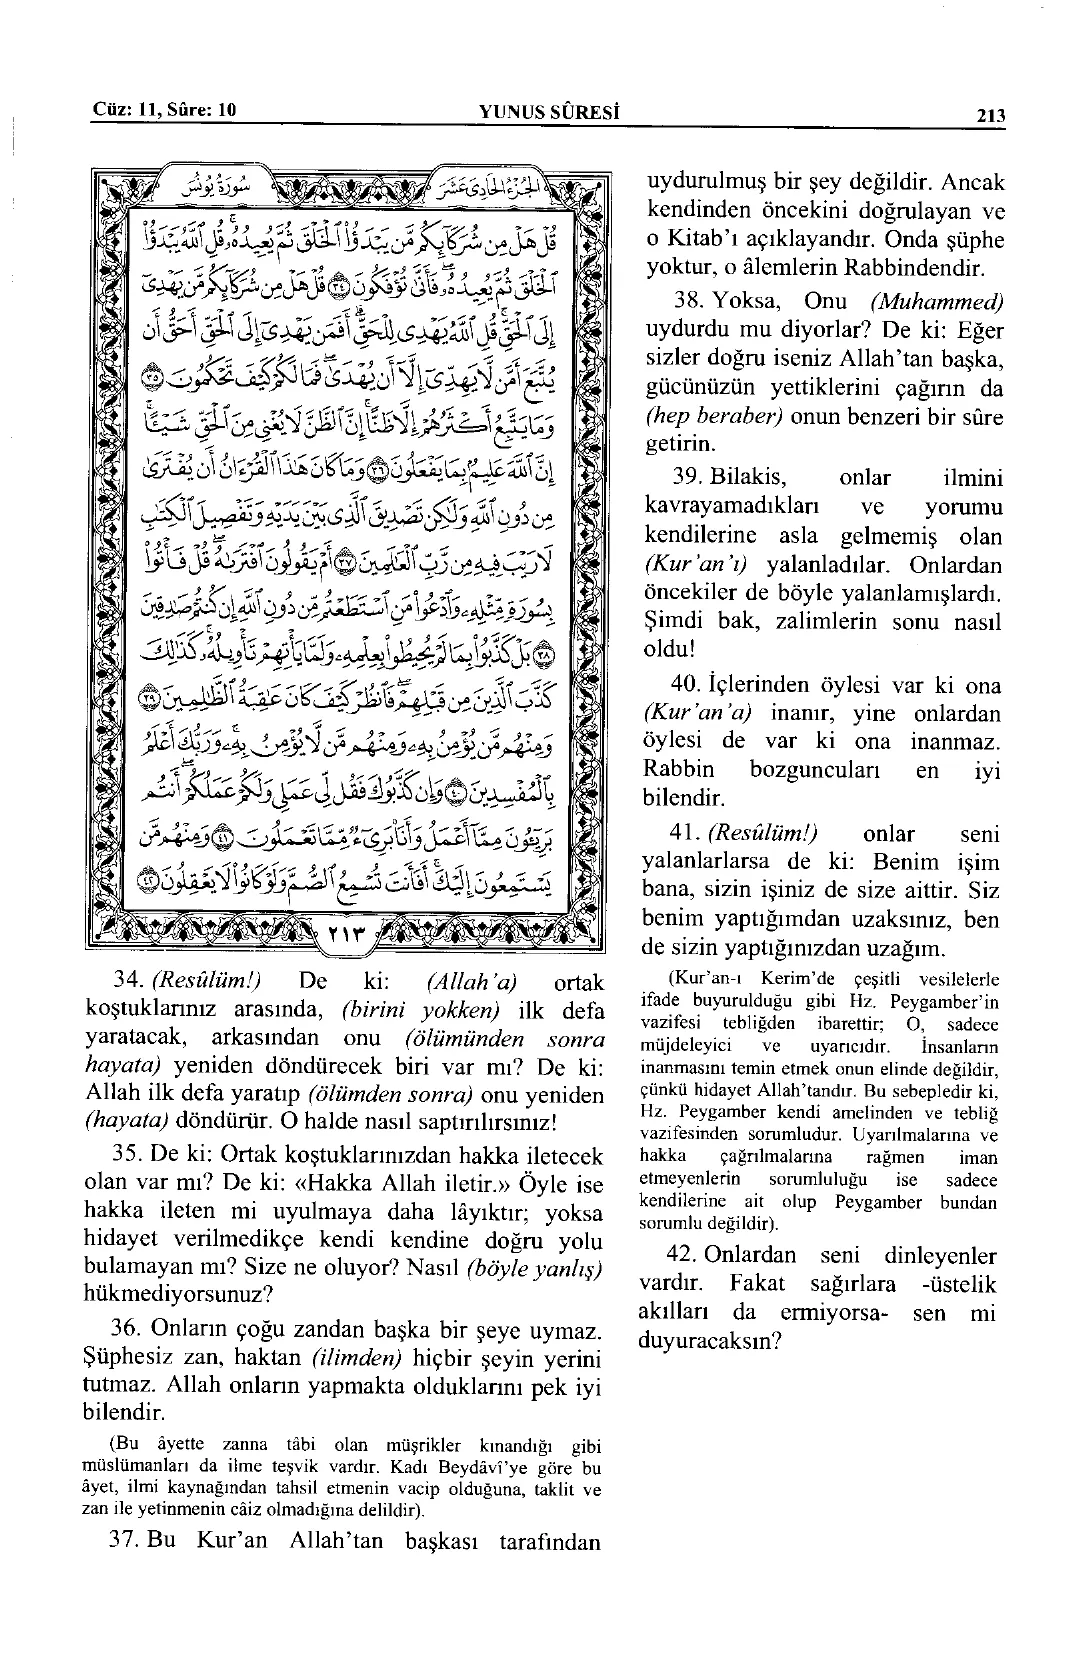 Cüz: 11, Sûre: 10
YUNUS SÛRESİ
213
سُورَةُ يُونُسَ
الجُزْءُ الحَادِي عَشَرَ
قُلْ هَلْ مِنْ شُرَكَائِكُمْ مَنْ يَبْدَؤُا الْخَلْقَ ثُمَّ يُعِيدُهُ قُلِ اللّٰهُ يَبْدَؤُا
الْخَلْقَ ثُمَّ يُعِيدُهُ فَاَنّٰى تُؤْفَكُونَ ﴿٣٤﴾ قُلْ هَلْ مِنْ شُرَكَائِكُمْ مَنْ يَهْدِي
اِلَى الْحَقِّ قُلِ اللّٰهُ يَهْدِي لِلْحَقِّ اَفَمَنْ يَهْدِي اِلَى الْحَقِّ اَحَقُّ اَنْ
يُتَّبَعَ اَمَّنْ لَا يَهِدِّي اِلَّا اَنْ يُهْدٰى فَمَا لَكُمْ كَيْفَ تَحْكُمُونَ ﴿٣٥﴾
وَمَا يَتَّبِعُ اَكْثَرُهُمْ اِلَّا ظَنًّا اِنَّ الظَّنَّ لَا يُغْنِي مِنَ الْحَقِّ شَيْئًا
اِنَّ اللّٰهَ عَلِيمٌ بِمَا يَفْعَلُونَ ﴿٣٦﴾ وَمَا كَانَ هٰذَا الْقُرْاٰنُ اَنْ يُفْتَرٰى
مِنْ دُونِ اللّٰهِ وَلٰكِنْ تَصْدِيقَ الَّذِي بَيْنَ يَدَيْهِ وَتَفْصِيلَ الْكِتَابِ
لَا رَيْبَ فِيهِ مِنْ رَبِّ الْعَالَمِينَ ﴿٣٧﴾ اَمْ يَقُولُونَ افْتَرٰيهُ قُلْ فَأْتُوا
بِسُورَةٍ مِثْلِهِ وَادْعُوا مَنِ اسْتَطَعْتُمْ مِنْ دُونِ اللّٰهِ اِنْ كُنْتُمْ صَادِقِينَ
﴿٣٨﴾ بَلْ كَذَّبُوا بِمَا لَمْ يُحِيطُوا بِعِلْمِهِ وَلَمَّا يَأْتِهِمْ تَأْوِيلُهُ كَذٰلِكَ
كَذَّبَ الَّذِينَ مِنْ قَبْلِهِمْ فَانْظُرْ كَيْفَ كَانَ عَاقِبَةُ الظَّالِمِينَ ﴿٣٩﴾
وَمِنْهُمْ مَنْ يُؤْمِنُ بِهِ وَمِنْهُمْ مَنْ لَا يُؤْمِنُ بِهِ وَرَبُّكَ اَعْلَمُ
بِالْمُفْسِدِينَ ﴿٤٠﴾ وَاِنْ كَذَّبُوكَ فَقُلْ لِي عَمَلِي وَلَكُمْ عَمَلُكُمْ اَنْتُمْ
بَرِيئُونَ مِمَّا اَعْمَلُ وَاَنَا بَرِيءٌ مِمَّا تَعْمَلُونَ ﴿٤١﴾ وَمِنْهُمْ مَنْ
يَسْتَمِعُونَ اِلَيْكَ اَفَاَنْتَ تُسْمِعُ الصُّمَّ وَلَوْ كَانُوا لَا يَعْقِلُونَ ﴿٤٢﴾
٢١٣
34. (Resûlüm!) De ki: (Allah'a) ortak
koştuklarınız arasında, (birini yokken) ilk defa
yaratacak, arkasından onu (ölümünden sonra
hayata) yeniden döndürecek biri var mı? De ki:
Allah ilk defa yaratıp (ölümden sonra) onu yeniden
(hayata) döndürür. O halde nasıl saptırılırsınız!
35. De ki: Ortak koştuklarınızdan hakka iletecek
olan var mı? De ki: «Hakka Allah iletir.» Öyle ise
hakka ileten mi uyulmaya daha lâyıktır; yoksa
hidayet verilmedikçe kendi kendine doğru yolu
bulamayan mı? Size ne oluyor? Nasıl (böyle yanlış)
hükmediyorsunuz?
36. Onların çoğu zandan başka bir şeye uymaz.
Şüphesiz zan, haktan (ilimden) hiçbir şeyin yerini
tutmaz. Allah onların yapmakta olduklarını pek iyi
bilendir.
(Bu âyette zanna tâbi olan müşrikler kınandığı gibi
müslümanları da ilme teşvik vardır. Kadı Beydâvî'ye göre bu
âyet, ilmi kaynağından tahsil etmenin vacip olduğuna, taklit ve
zan ile yetinmenin câiz olmadığına delildir).
37. Bu Kur'an Allah'tan başkası tarafından
uydurulmuş bir şey değildir. Ancak
kendinden öncekini doğrulayan ve
o Kitab'ı açıklayandır. Onda şüphe
yoktur, o âlemlerin Rabbindendir.
38. Yoksa, Onu (Muhammed)
uydurdu mu diyorlar? De ki: Eğer
sizler doğru iseniz Allah'tan başka,
gücünüzün yettiklerini çağırın da
(hep beraber) onun benzeri bir sûre
getirin.
39. Bilakis, onlar ilmini
kavrayamadıkları ve yorumu
kendilerine asla gelmemiş olan
(Kur'an'ı) yalanladılar. Onlardan
öncekiler de böyle yalanlamışlardı.
Şimdi bak, zalimlerin sonu nasıl
oldu!
40. İçlerinden öylesi var ki ona
(Kur'an'a) inanır, yine onlardan
öylesi de var ki ona inanmaz.
Rabbin bozguncuları en iyi
bilendir.
41. (Resûlüm!) onlar seni
yalanlarlarsa de ki: Benim işim
bana, sizin işiniz de size aittir. Siz
benim yaptığımdan uzaksınız, ben
de sizin yaptığınızdan uzağım.
(Kur'an-ı Kerim'de çeşitli vesilelerle
ifade buyurulduğu gibi Hz. Peygamber'in
vazifesi tebliğden ibarettir; O, sadece
müjdeleyici ve uyarıcıdır. İnsanların
inanmasını temin etmek onun elinde değildir,
çünkü hidayet Allah'tandır. Bu sebepledir ki,
Hz. Peygamber kendi amelinden ve tebliğ
vazifesinden sorumludur. Uyarılmalarına ve
hakka çağrılmalarına rağmen iman
etmeyenlerin sorumluluğu ise sadece
kendilerine ait olup Peygamber bundan
sorumlu değildir).
42. Onlardan seni dinleyenler
vardır. Fakat sağırlara -üstelik
akılları da ermiyorsa- sen mi
duyuracaksın?